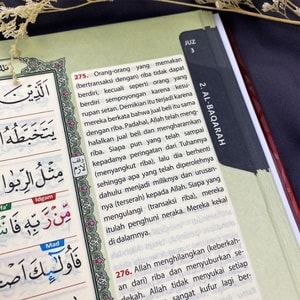 JUZ
3
2. AL-BAQARAH
275. Orang-orang yang memakan
(bertransaksi dengan) riba tidak dapat
berdiri, kecuali seperti orang yang
berdiri sempoyongan karena kesu-
rupan setan. Demikian itu terjadi karena
mereka berkata bahwa jual beli itu sama
dengan riba. Padahal, Allah telah meng-
halalkan jual beli dan mengharamkan
riba. Siapa pun yang telah sampai
kepadanya peringatan dari Tuhannya
(menyangkut riba), lalu dia berhenti
sehingga apa yang telah diperolehnya
dahulu menjadi miliknya dan urusan-
nya (terserah) kepada Allah. Siapa yang
mengulangi (transaksi riba), mereka
itulah penghuni neraka. Mereka kekal
di dalamnya.
276. Allah menghilangkan (keberkah-
an dari) riba dan menyuburkan se-
Allah tidak menyukai setiap
sangat kufur lagi ber-
الَّذِيْنَ
يَتَخَبَّطُهُ
مِثْلُ الرِّبٰوا
Idgam
مِّنْ رَّبِّهٖ فَا
Mad
فَاُولٰۤىِٕكَ اَصْ